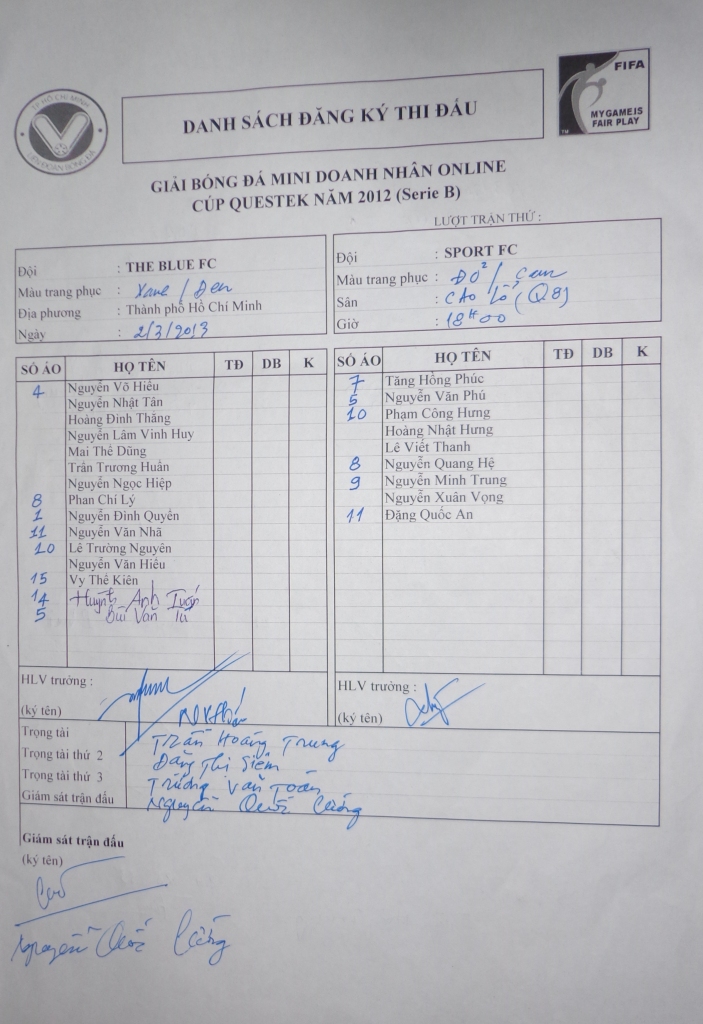 TP HỒ CHÍ MINH
LIÊN ĐOÀN BÓNG ĐÁ
DANH SÁCH ĐĂNG KÝ THI ĐẤU
FIFA
MY GAME IS
FAIR PLAY
TM
GIẢI BÓNG ĐÁ MINI DOANH NHÂN ONLINE
CÚP QUESTEK NĂM 2012 (Serie B)
LƯỢT TRẬN THỨ :
Đội : THE BLUE FC
Màu trang phục : Xanh / Đen
Địa phương : Thành phố Hồ Chí Minh
Ngày : 2/3/2013
Đội : SPORT FC
Màu trang phục : Đỏ / Cam
Sân : CAO LỖ (Q8)
Giờ : 18H00
SỐ ÁO HỌ TÊN TĐ DB K
4 Nguyễn Võ Hiếu
Nguyễn Nhật Tân
Hoàng Đình Thắng
Nguyễn Lâm Vinh Huy
Mai Thế Dũng
Trần Trương Huấn
Nguyễn Ngọc Hiệp
8 Phan Chí Lý
1 Nguyễn Đình Quyền
11 Nguyễn Văn Nhã
10 Lê Trường Nguyên
Nguyễn Văn Hiếu
15 Vy Thế Kiên
14 Huỳnh Anh Tuấn
5 Bùi Văn Tú
HLV trưởng :
(ký tên)
SỐ ÁO HỌ TÊN TĐ DB K
7 Tăng Hồng Phúc
5 Nguyễn Văn Phú
10 Phạm Công Hưng
Hoàng Nhật Hưng
Lê Viết Thanh
8 Nguyễn Quang Hệ
9 Nguyễn Minh Trung
Nguyễn Xuân Vọng
11 Đặng Quốc An
HLV trưởng :
(ký tên)
Trọng tài Trần Hoàng Trung
Trọng tài thứ 2 Đặng Thị Siêm
Trọng tài thứ 3 Trương Văn Toán
Giám sát trận đấu Nguyễn Quốc Cường
Giám sát trận đấu
(ký tên)
Nguyễn Quốc Cường